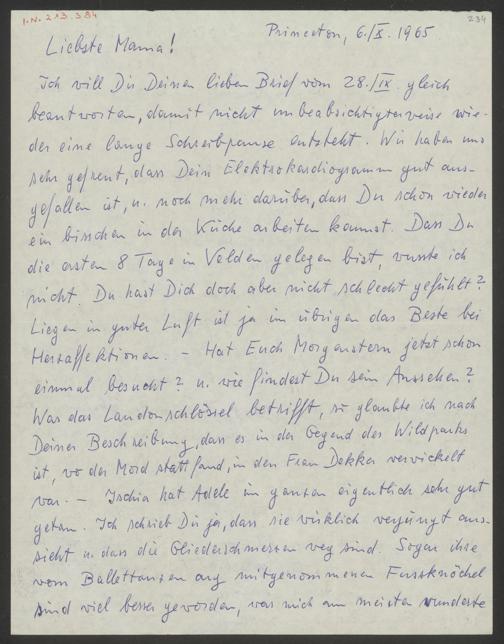 I.N. 213.384
234
Princeton, 6./X. 1965
Liebste Mama!
Ich will Dir Deinen lieben Brief vom 28./IX. gleich
beantworten, damit nicht unbeabsichtigterweise wie-
der eine lange Schreibpause entsteht. Wir haben uns
sehr gefreut, dass Dein Elektrokardiogramm gut aus-
gefallen ist, u. noch mehr darüber, dass Du schon wieder
ein bisschen in der Küche arbeiten kannst. Dass Du
die ersten 8 Tage in Velden gelegen bist, wusste ich
nicht. Du hast Dich doch aber nicht schlecht gefühlt?
Liegen in guter Luft ist ja im übrigen das Beste bei
Herzaffektionen. – Hat Euch Morgenstern jetzt schon
einmal besucht? u. wie findest Du sein Aussehen?
Was das Landonschlössel betrifft, so glaubte ich nach
Deiner Beschreibung, dass es in der Gegend des Wildparks
ist, wo der Mord stattfand, in den Frau Dekker verwickelt
war. – Ischia hat Adele im ganzen eigentlich sehr gut
getan. Ich schrieb Dir ja, dass sie wirklich verjüngt aus-
sieht u. dass die Gliederschmerzen weg sind. Sogar ihre
vom Ballettanzen arg mitgenommenen Fussknöchel
sind viel besser geworden, was mich am meisten wunderte